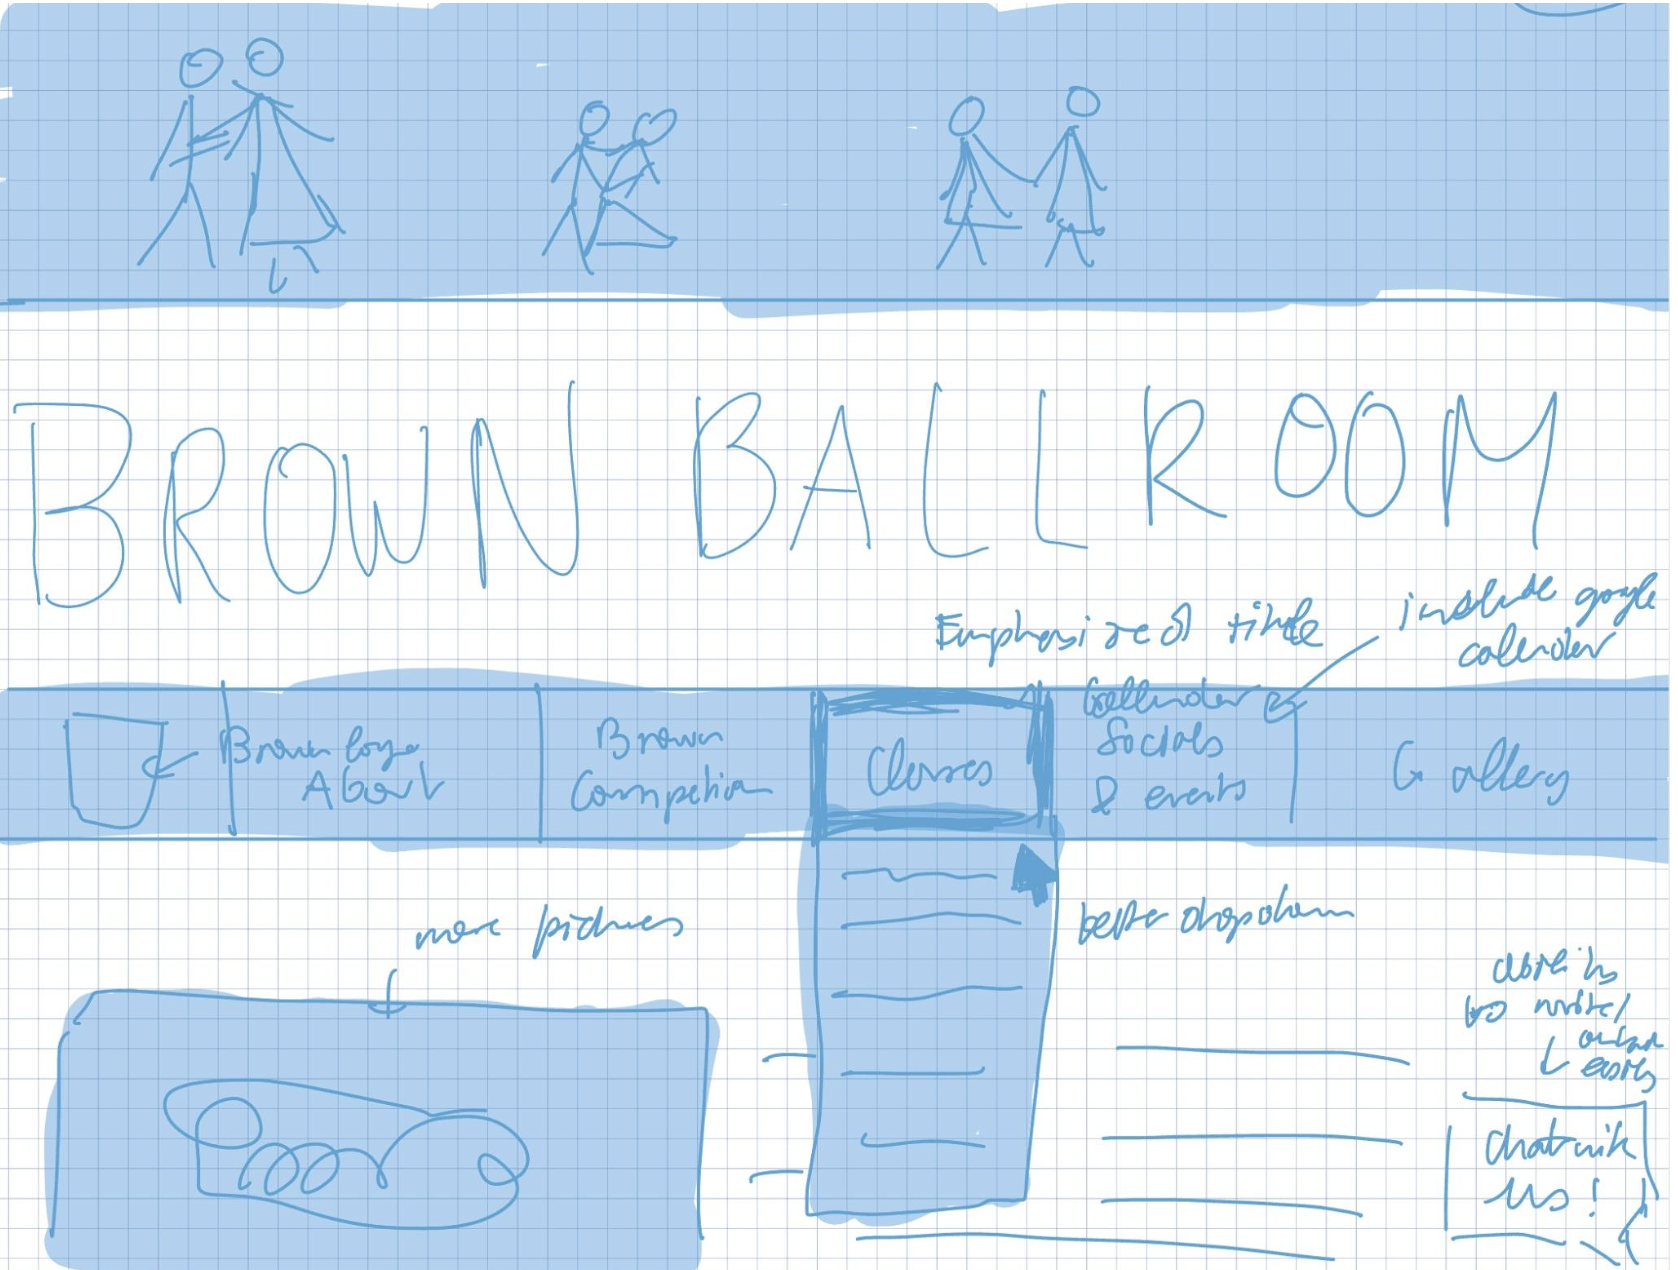 BROWN BALLROOM
Emphasized title
include google
calender
Brown logo
About
Brown
Competition
Classes
Callender
Socials
& events
Gallery
more pictures
better dropdown
to
easily
Chat with
us!